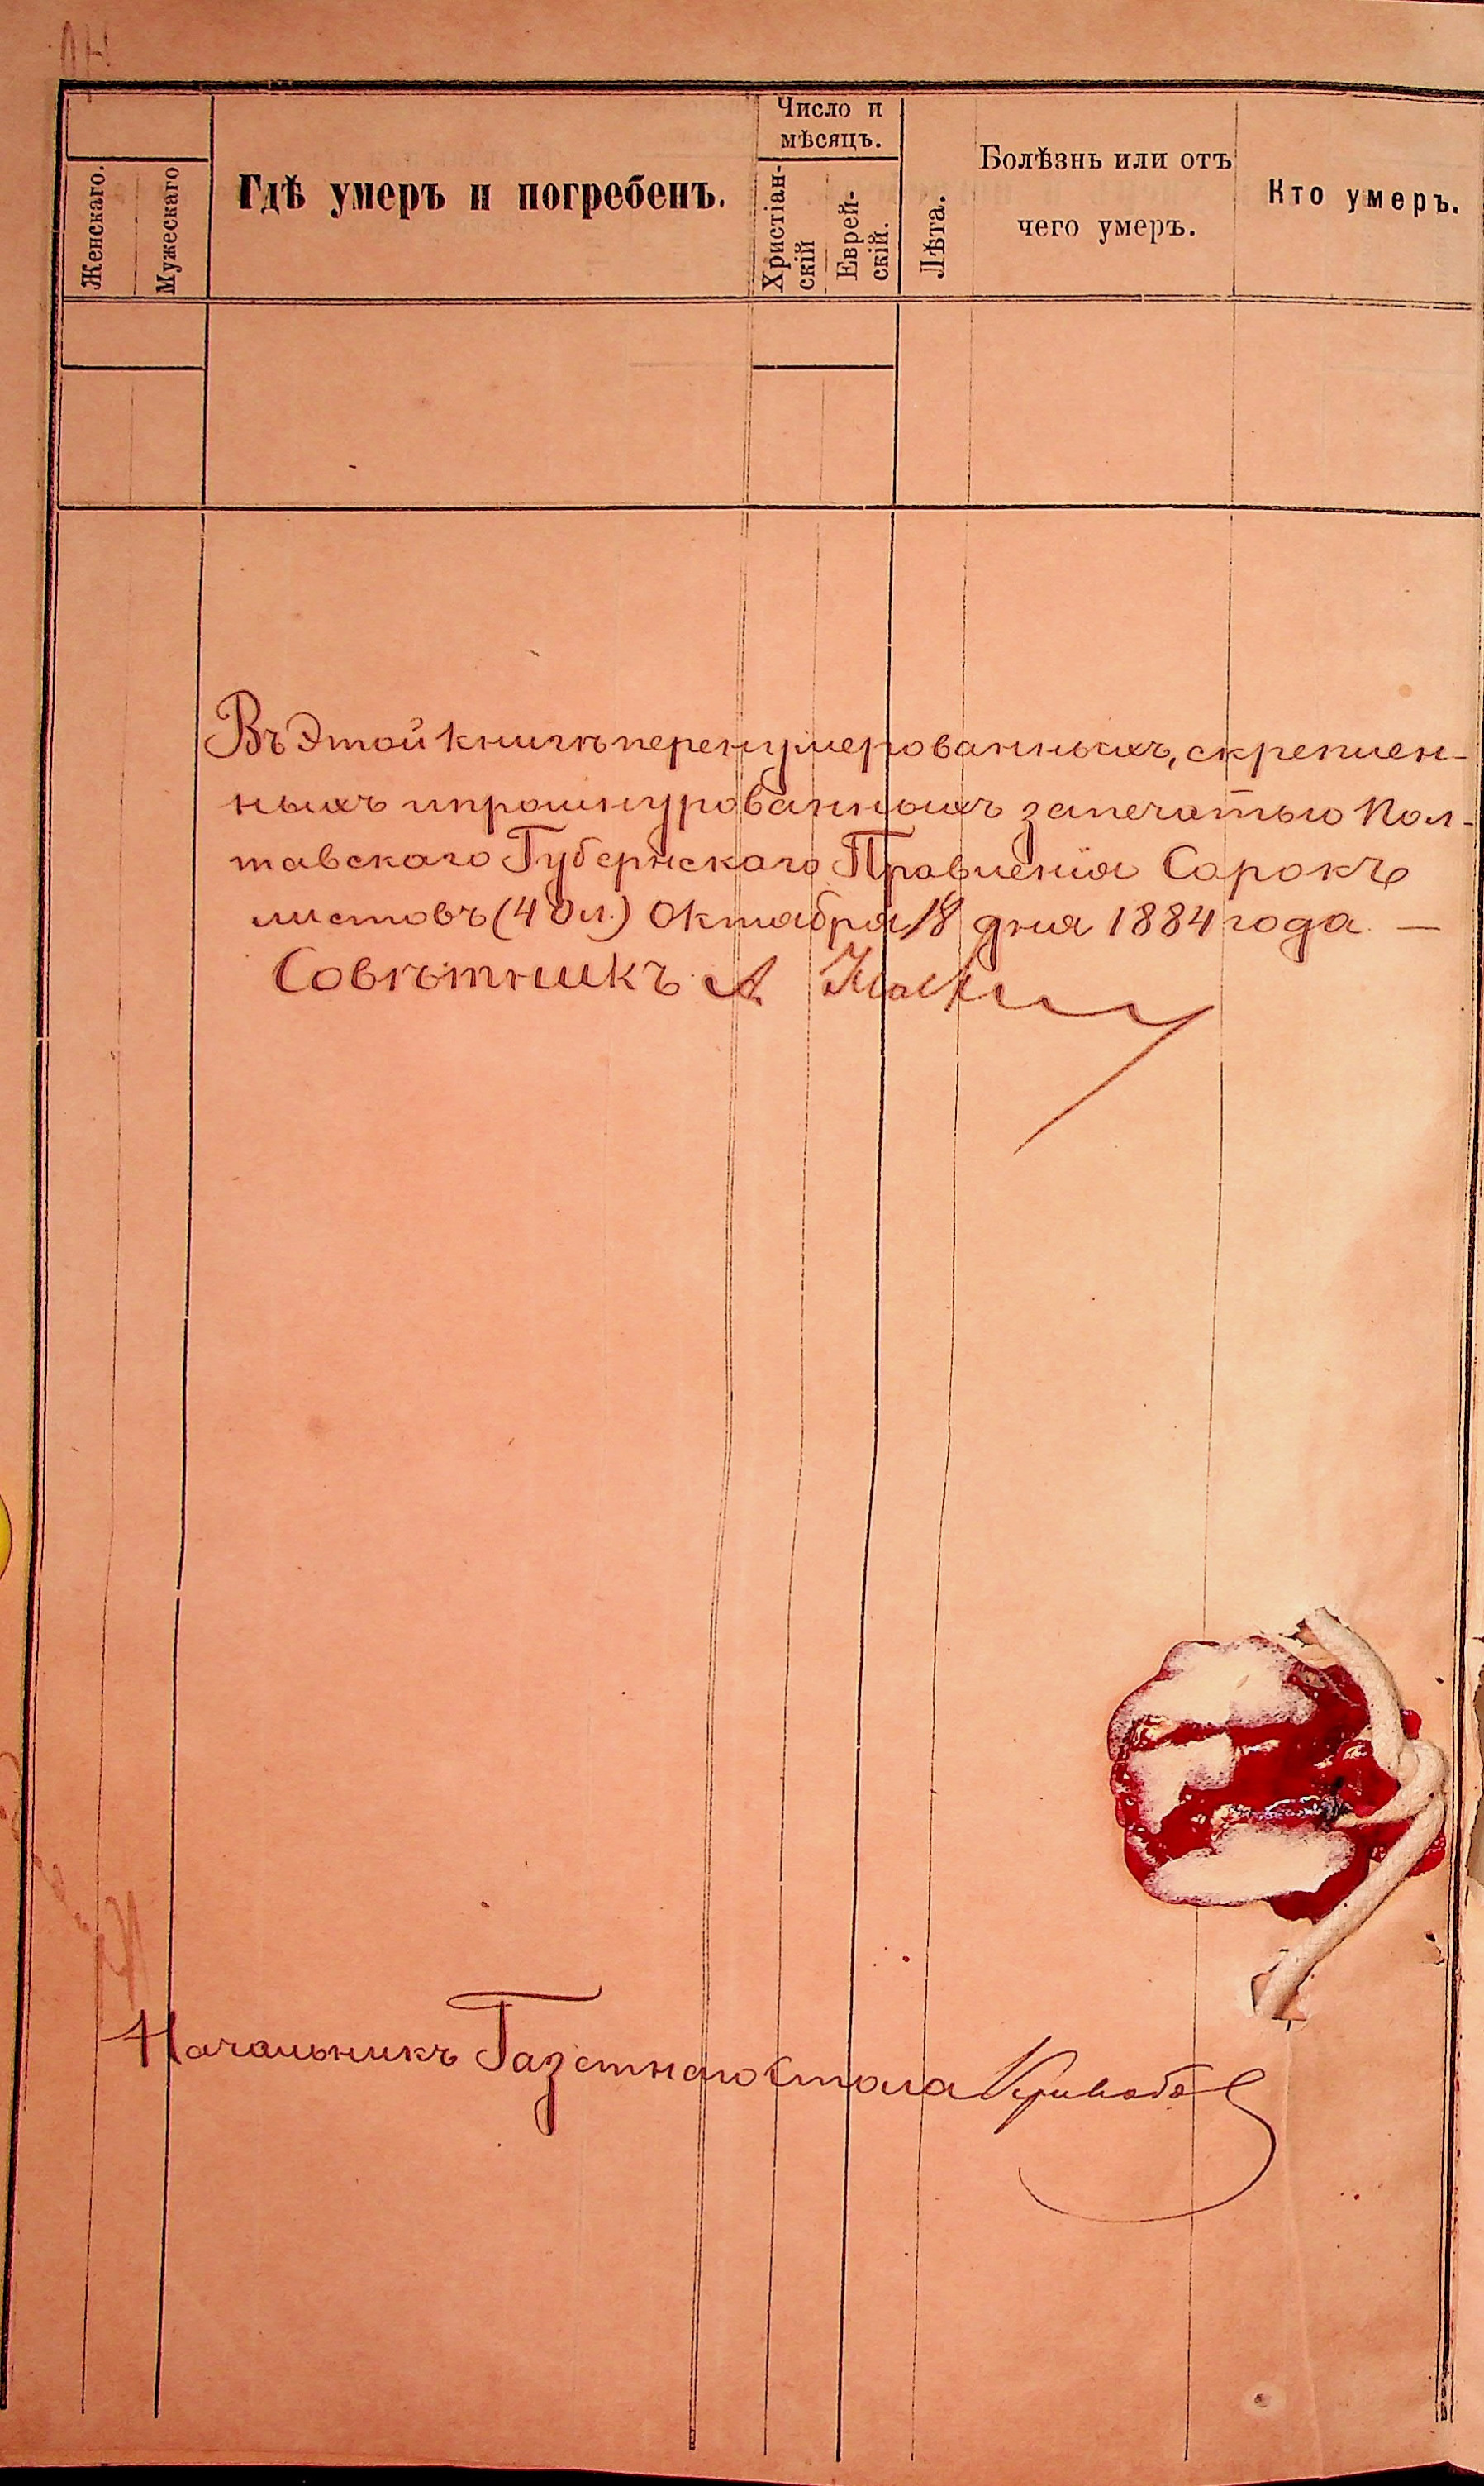 Число и
мѣсяцъ.
Женскаго.
Мужескаго
Гдѣ умеръ и погребенъ.
Христіан-
скій
Еврей-
скій.
Лѣта.
Болѣзнь или отъ
чего умеръ.
Кто умеръ.
Въ этой книгѣ перенумерованныхъ, скреплен-
ныхъ и прошнурованныхъ за печатью Пол-
тавскаго Губернскаго Правленія Сорокъ
листовъ (40 л.) Октября 18 дня 1884 года. —
Совѣтникъ А
Начальникъ Газетнаго Стола